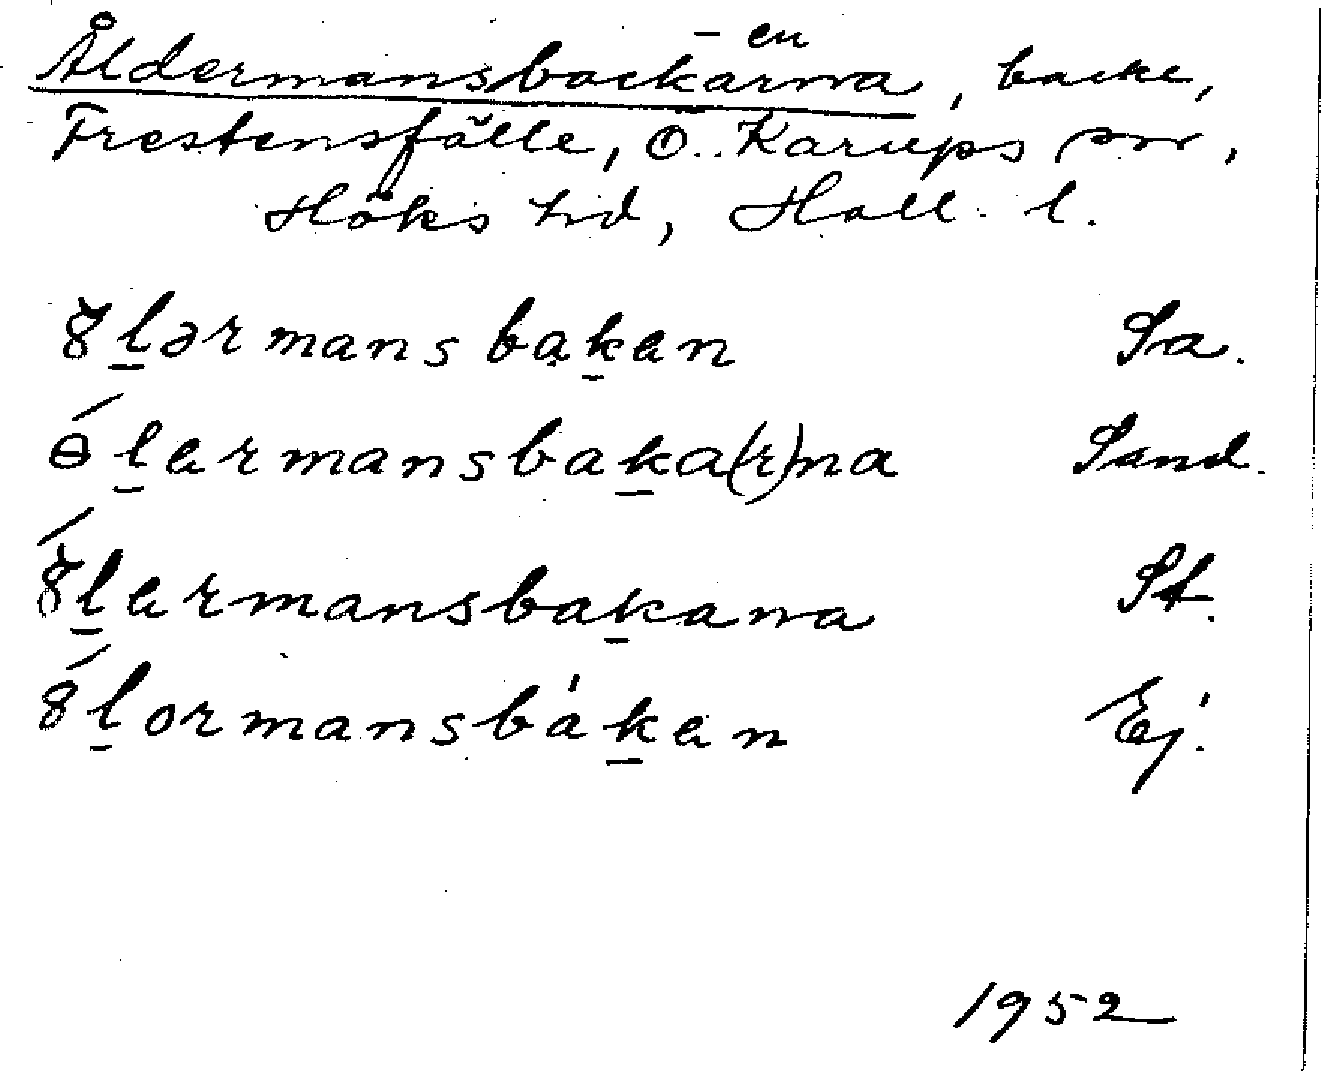 - en
Åldermansbackarna, backe,
Frestensfälle, Ö. Karups sn,
Höks hd, Hall. l.
8lərmansbakan Sa.
ɵ́larmansbaka(r)na Sand.
8́larmansbakana St.
8́lormansbákan Ej.
1952